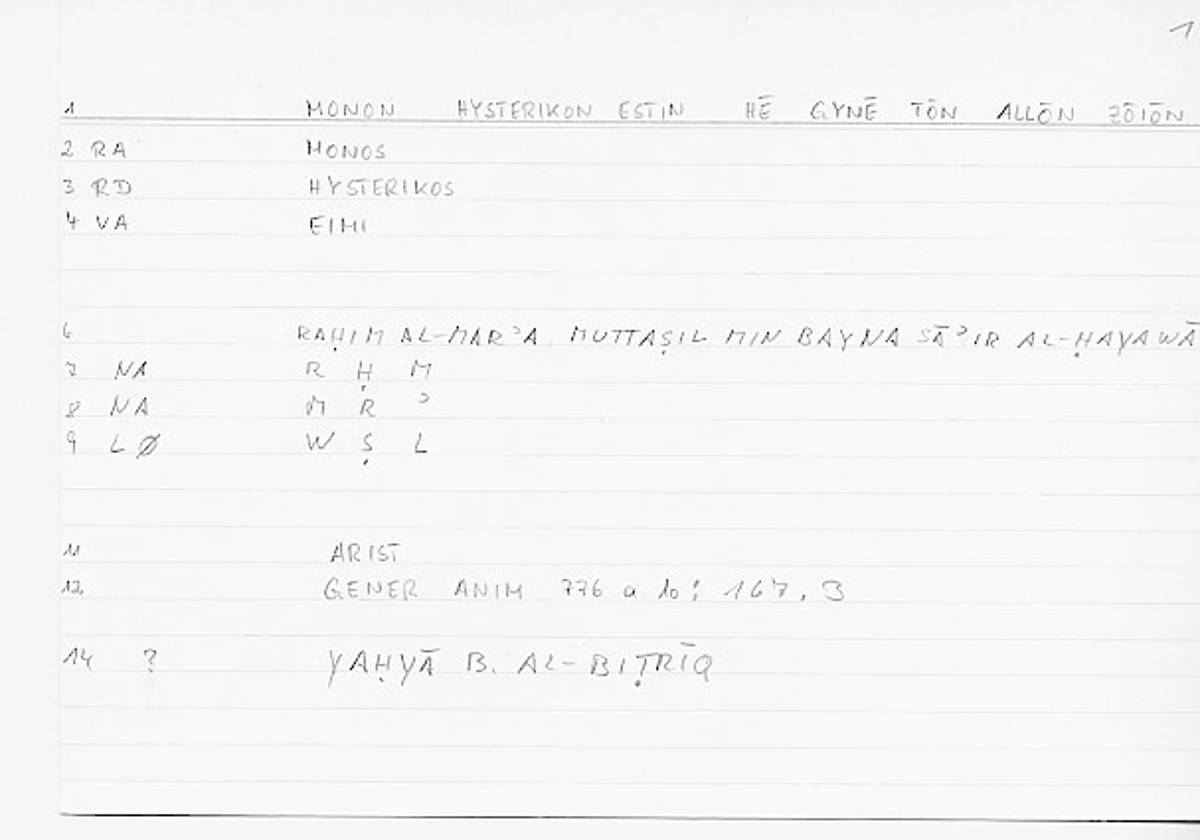 1
1 MONON HYSTERIKON ESTIN HĒ GYNĒ TŌN ALLŌN ZŌIŌN
2 RA MONOS
3 RD HYSTERIKOS
4 VA EIMI
6 RAḤIM AL-MARʾA MUTTAṢIL MIN BAYNA SĀʾIR AL-ḤAYAWĀ
7 NA R Ḥ M
8 NA M R ʾ
9 LØ W Ṣ L
11 ARIST
12 GENER ANIM 776 a 10; 167, 3
14 ? YAḤYĀ B. AL-BIṬRĪQ